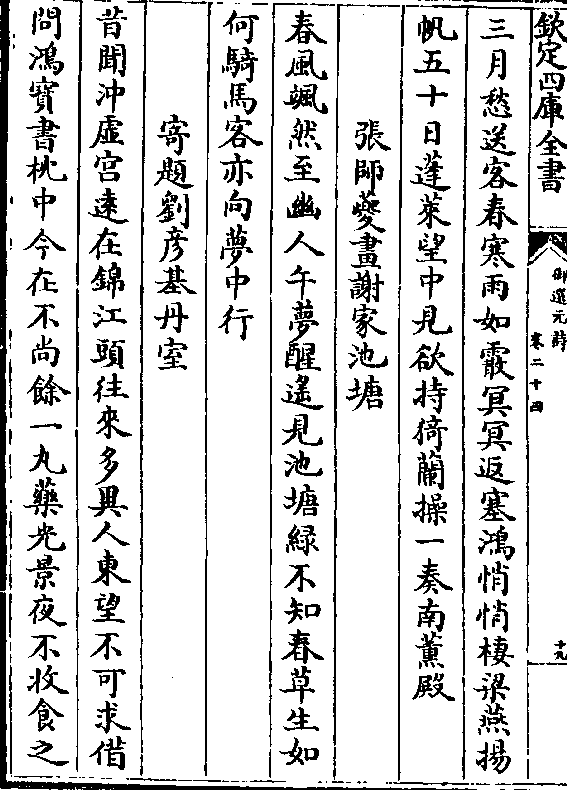 欽定四庫全書
御選元詩
卷二十四
十九
三月愁送客春寒雨如霰冥冥返塞鴻悄悄棲梁燕揚
帆五十日蓬萊望中見欲持猗蘭操一奏南薰殿
張師夔畫謝家池塘
春風颯然至幽人午夢醒遙見池塘綠不知春草生如
何騎馬客亦向夢中行
寄題劉彥基丹室
昔聞沖虛宮遠在錦江頭往來多異人東望不可求借
問鴻寶書枕中今在不尚餘一丸藥光景夜不收食之